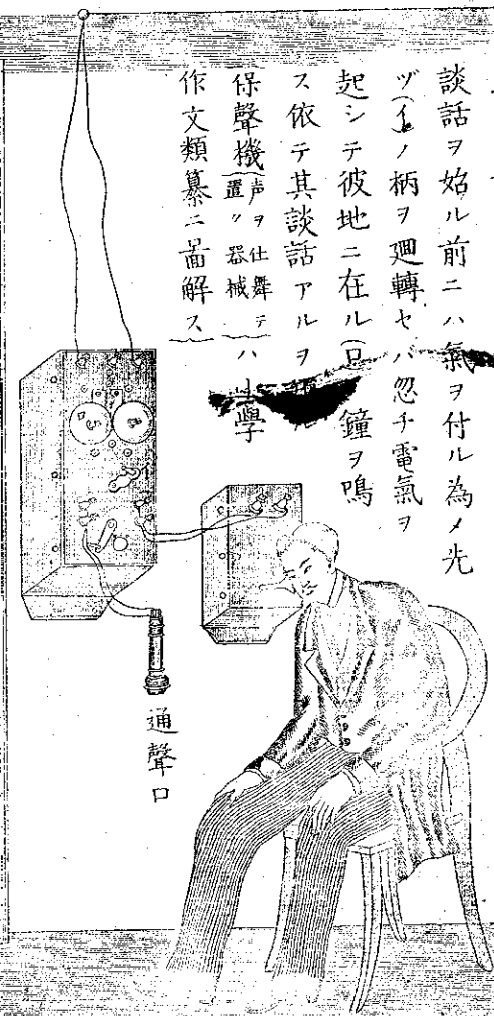 談話ヲ始ル前ニハ氣ヲ付ル為メ先
ヅ(イ)ノ柄ヲ廻轉セバ忽チ電氣ヲ
起シテ彼地ニ在ル(ロ)鐘ヲ鳴
ス依テ其談話アルヲ
保聲機声ヲ仕舞テ置ク器械ハ 學
作文類纂ニ啚解ス
通聲口